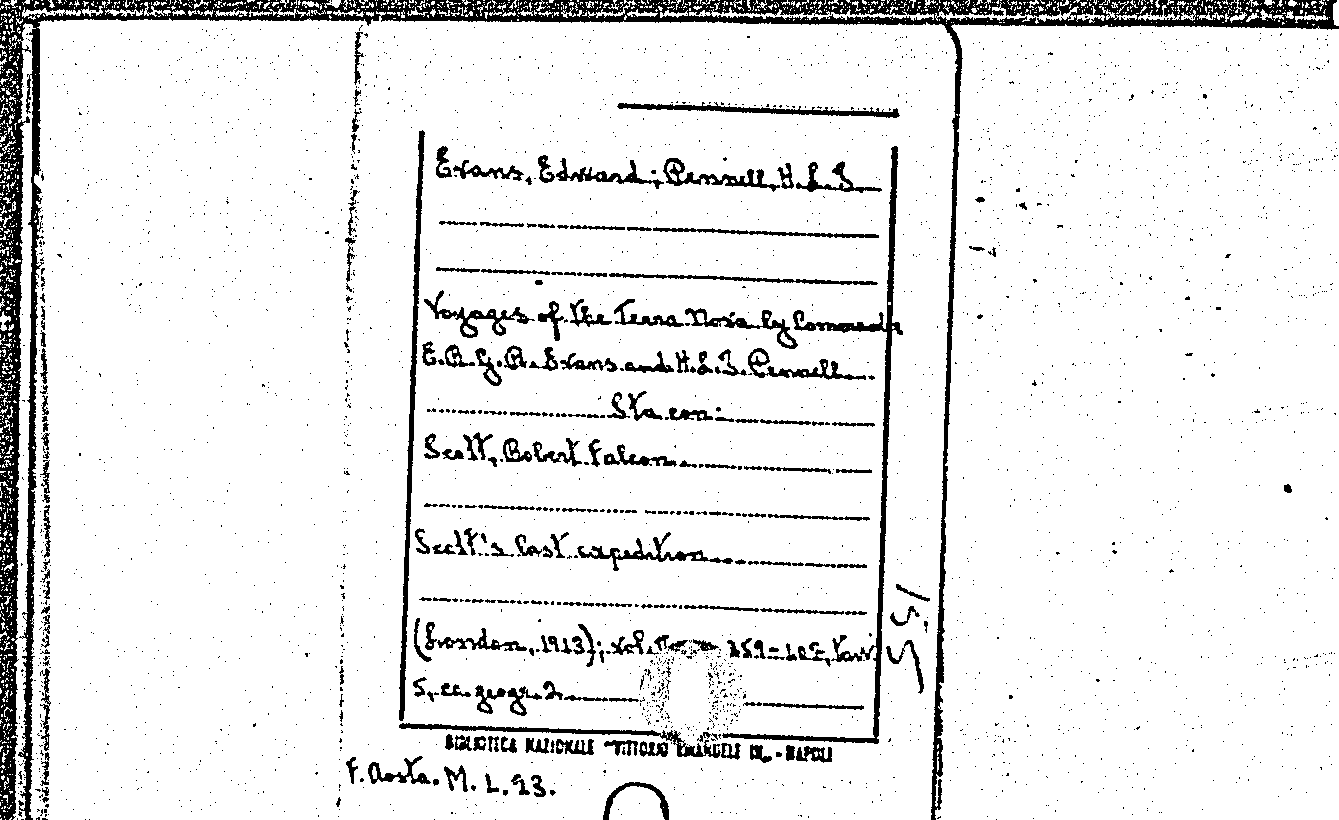 Evans, Edward; Pennell, H. L. L.
Voyages of the Terra Nova by Comorander
E. R. G. R. Evans and H. L. L. Pennell
Sta con:
Scott, Robert Falcon.
Scott's last expedition
(London, 1913); vol. 359-402, tav.
5, cc. geogr. 2.
BIBLIOTECA NAZIONALE "VITTORIO EMANUELE III" - NAPOLI
F. Aosta. M. L. 93.